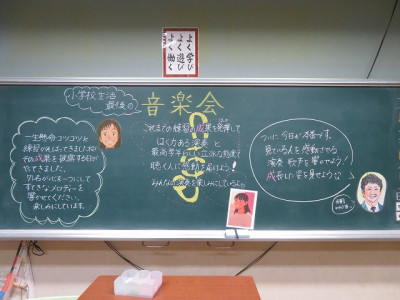 よく学び
よく遊び
よく働く
小学校生活
最後の
音楽会
一生懸命コツコツと
練習がんばってきましたね!
その成果を披露する日が
やってきました。
71名が心を一つにして
すてきなメロディーを
響かせてください。
楽しみにしています。
これまでの練習の成果を発揮して
はく力ある演奏と
最高学年らしい立派な態度で
聴く人に感動を届けよう!
みんなの演奏を楽しみにしているよ。
ついに今日が本番です。
見ている人を感動させる
演奏、歌声を響かせよう!
成長した姿を見せような